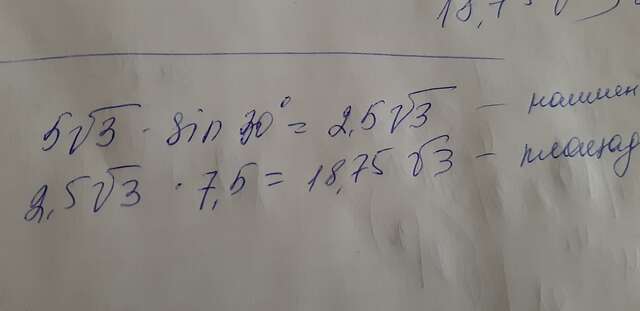 18,75√3
5√3 · sin 30° = 2,5√3 — наимен
2,5√3 · 7,5 = 18,75 √3 — площад